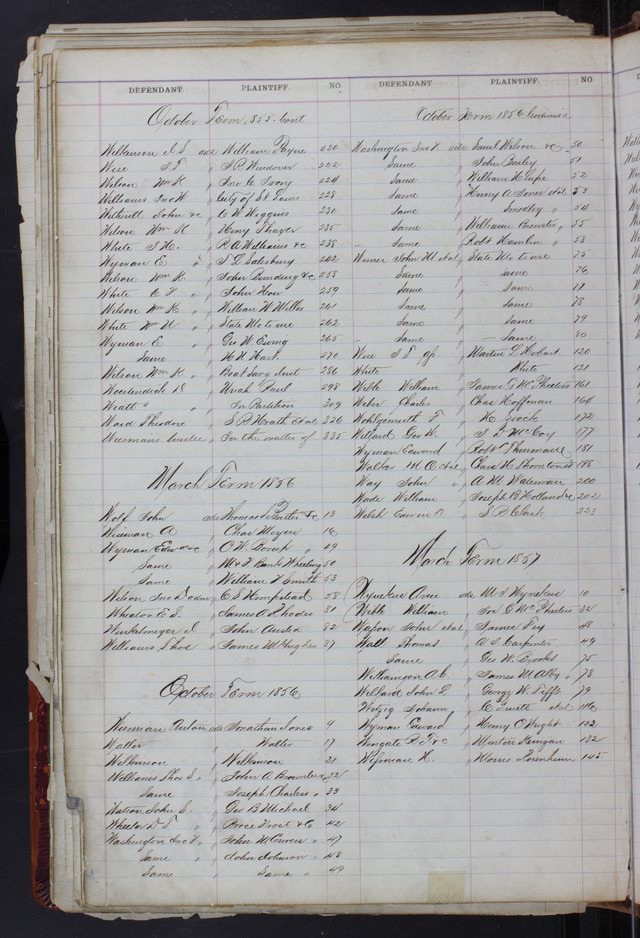 DEFENDANT. PLAINTIFF. NO.
October Term 1855 Cont
Wilkinson J. S. ads William Payne 020
Weir S T " J R Windover 222
Wilson Wm K " Jno C Ivory 224
Williams Jno W City of St Louis 228
Witherell John &c " C W Wiggins 230
Wilson Wm K " Henry Thayer 235
White T. H. " R A Williams &c 238
Wyman E " T. D. Salesbury 242
Wilson Wm K. " John Bunding &c 258
White C T " John How 259
Wilson Wm K " William W Miller 261
White Wm N " State Mo to use 262
Wyman E " Geo W Ewing 265
Same " H N Hart 270
Wilson Wm K " Boat Savg Inst 286
Woestendiek D " Uriah Paul 298
Wyatt's " In Partition 309
Ward Theodore " S B Heath et al 326
Wiesmans trustee " In the matter of 335
March Term 1856
Wolf John ads Thomas J Butler &c 13
Wissman A " Chas Meyer 16
Wyman Edw &c " O W 49
Same " M & F Bank Wheeling 50
Same " William T Smith 53
Wilson Jno D " C S Hempstead 58
Wheaton E S. " James A Rhodes 81
Winkelmeyer J " John Austin 82
Williams Thos " James McHughes 87
October Term 1856
Wiesman Anton ads Jonathan Jones 9
Walter " Walter 17
Wilkinson " Wilkinson 21
Williams Thos S. " John A Brownlee 32
Same " Joseph Charless " 33
Watson John S. " Geo B Michael 34
Wheeler D T " Price Frost & Co 42
Washington Jno W. " John McCowen " 47
Same " John Johnson " 48
Same " Same " 49
DEFENDANT PLAINTIFF. NO
October Term 1856 Continued
Washington Jno W ads Saml Wilson &c 50
Same " John Bailey 51
Same " William H Pope 52
Same " Henry A Jones et al 53
Same " Smedley " 54
Same " William Brewster " 55
Same " Robt Hamlin " 58
Wimer John M et al " State Mo to use 75
Same " Same 76
Same " Same 77
Same " Same 78
Same " Same 79
Same " Same 80
Wire S T " Martin G Hobart 120
White " White 121
Webb William " James G McPheeters 161
Weber Charles " Chas Hoffman 166
Wohlgemuth F " H 172
Willard Geo W. " J F McCoy 177
Wyman Edward " Robt Thurmand 181
Walker M A et al " Chas H Thornton 188
Way John " A M Waterman 200
Wade William " Joseph B Holland &c 202
Welsh Edwin A " S B Clark 223
March Term 1857
Wynekin Aven ads M S Wynekin 10
Webb William " Jas G McPheeters 34
Wagoner John et al " James Fey 48
Wall Thomas " A S Carpenter 49
Same " Geo W Brooks 75
Williamson A C " James M Alby " 78
Willard John D " George W Tifft 79
Witzig Johann " C et al 116
Wyman Edward " Henry C Wright 132
Wingate R F &c " Martin Keegan 132
Wissman K. " Morris Louenheim 145